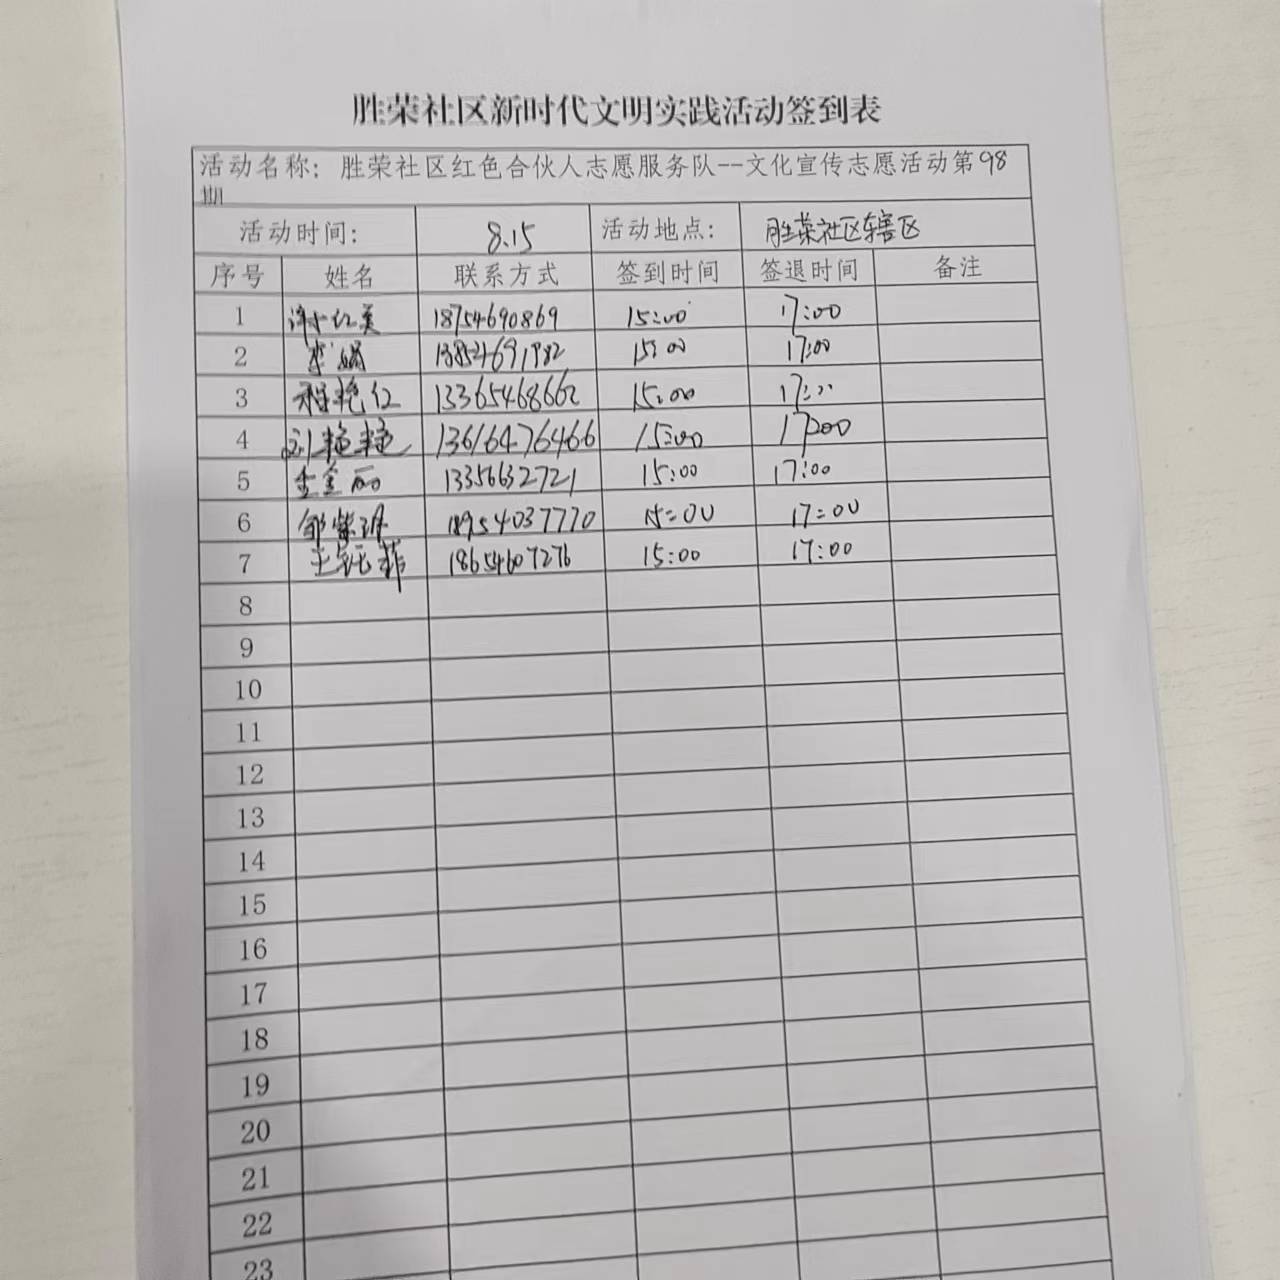 胜荣社区新时代文明实践活动签到表
活动名称：胜荣社区红色合伙人志愿服务队--文化宣传志愿活动第98
期
活动时间： 8.15 活动地点： 胜荣社区辖区
序号 姓名 联系方式 签到时间 签退时间 备注
1 红英 18754690869 15:00 17:00
2 李娟 15:00 17:00
3 程艳红 13365468662 15:00 17:
4 刘艳艳 13616476466 15:00 17:00
5 13356632721 15:00 17:00
6 邹紫 18954037770 15:00 17:00
7 王钰菲 18654607276 15:00 17:00
8
9
10
11
12
13
14
15
16
17
18
19
20
21
22
23